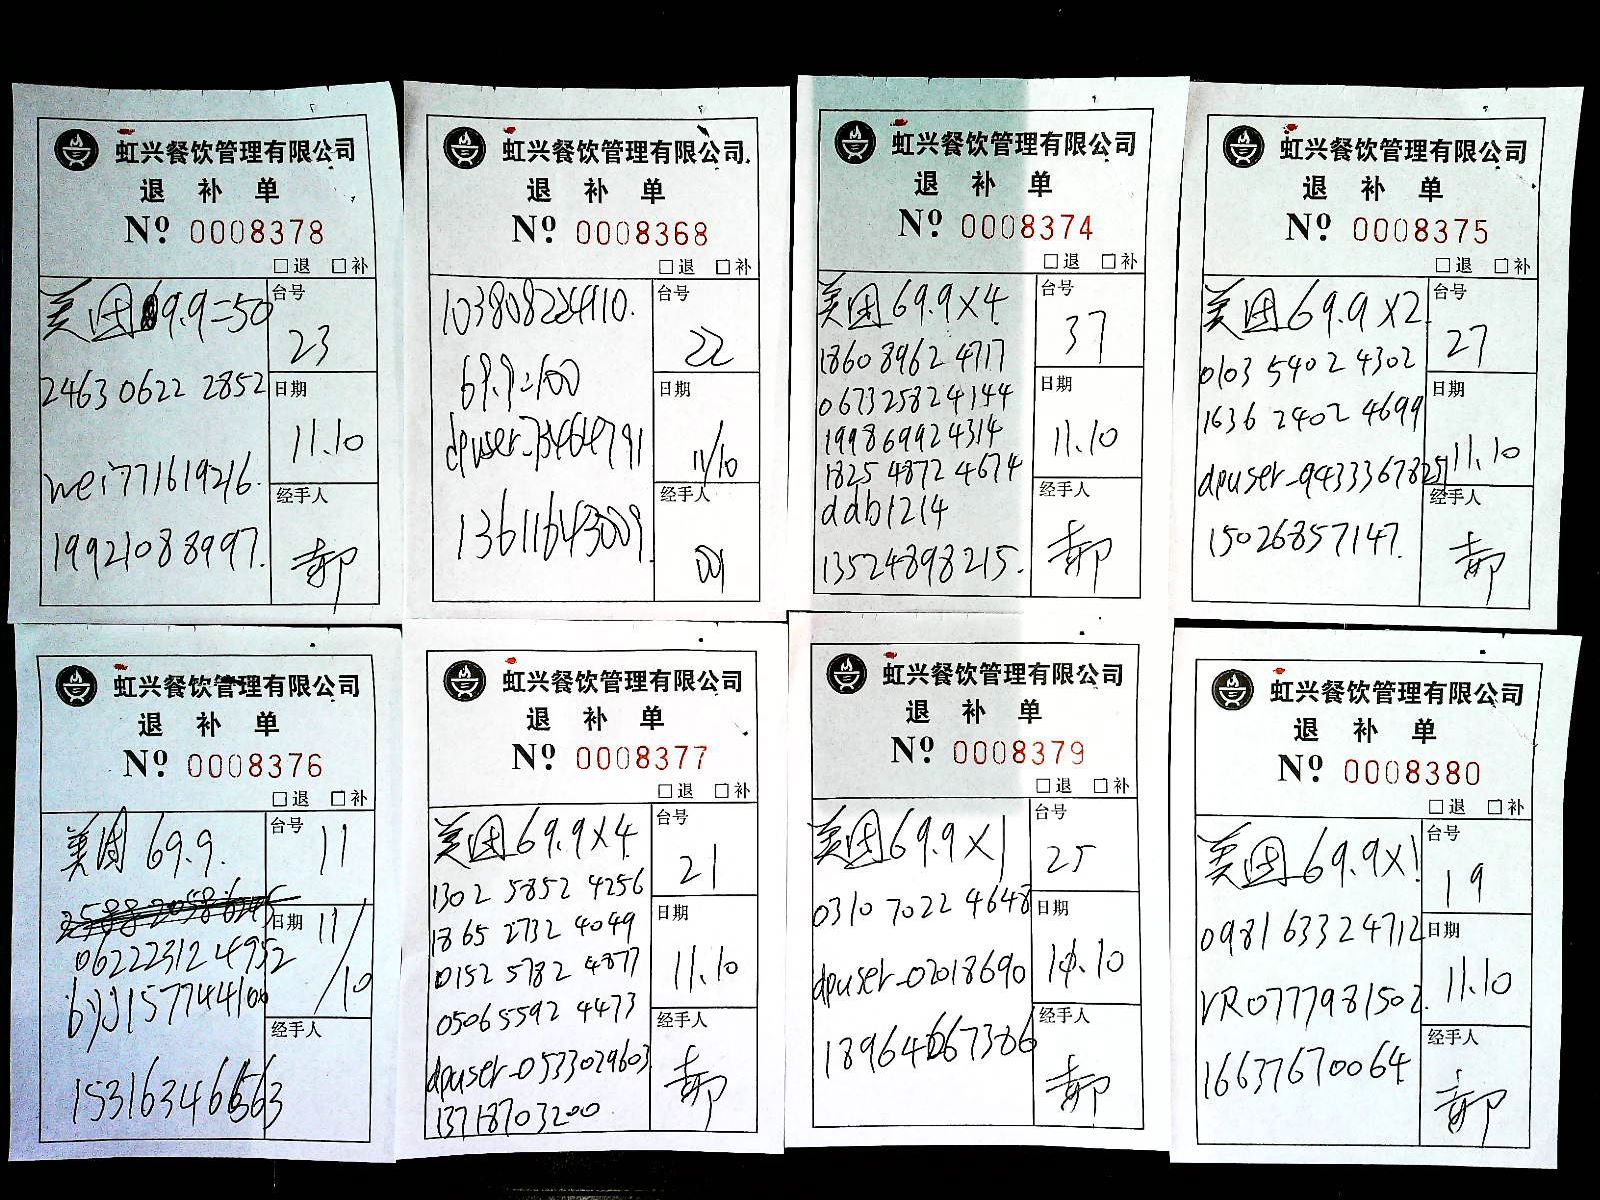 虹兴餐饮管理有限公司
退 补 单
Nº 0008378
□退 □补
美团69.9=50
2463 0622 2852
wei771619216.
19921088997.
台号
23
日期
11.10
经手人
郝
虹兴餐饮管理有限公司
退 补 单
Nº 0008368
□退 □补
103808224910.
69.9=100
dpuser-73464791
13611643009
台号
22
日期
11/10
经手人
001
虹兴餐饮管理有限公司
退 补 单
Nº 0008374
□退 □补
美团69.9×4
1860 8962 4717
0673 2582 4144
1998 6992 4314
1825 4872 4674
ddb1214
13524898215.
台号
37
日期
11.10
经手人
郝
虹兴餐饮管理有限公司
退 补 单
Nº 0008375
□退 □补
美团69.9×2
0103 5402 4302
1636 2402 4699
dpuser-9433367825
15026857147.
台号
27
日期
11.10
经手人
郝
虹兴餐饮管理有限公司
退 补 单
Nº 0008376
□退 □补
美团 69.9.
062223124952
15316346563
台号
11
日期
11/10
经手人
虹兴餐饮管理有限公司
退 补 单
Nº 0008377
□退 □补
美团69.9×4
1302 5852 4256
1865 2732 4049
0152 5782 4877
0506 5592 4473
dpuser-0533029603
13718703200
台号
21
日期
11.10
经手人
郝
虹兴餐饮管理有限公司
退 补 单
Nº 0008379
□退 □补
美团69.9×1
0310 7022 4648
dpuser-02018690
18964667386
台号
25
日期
11.10
经手人
郝
虹兴餐饮管理有限公司
退 补 单
Nº 0008380
□退 □补
美团69.9×1
0981 6332 4712
VR0777981502.
16637670064
台号
19
日期
11.10
经手人
郝